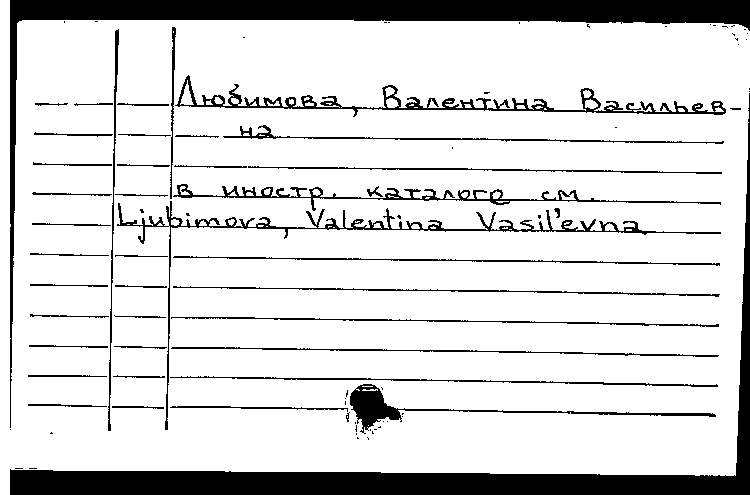 Любимова, Валентина Васильев-
на
в иностр. каталоге см.
Ljubimova, Valentina Vasil'evna